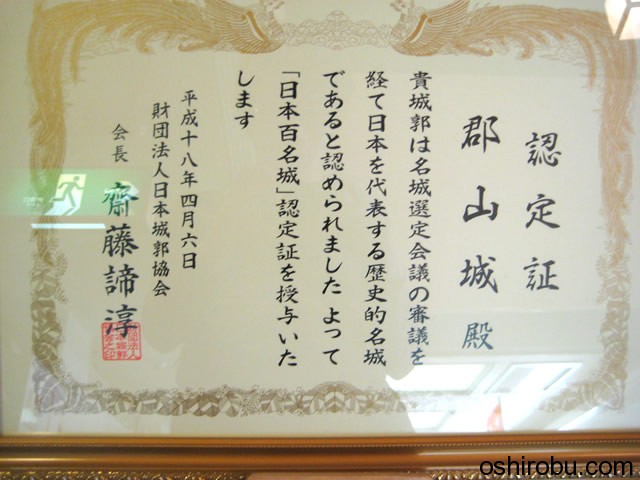 認定証
郡山城殿
貴城郭は名城選定会議の審議を
経て日本を代表する歴史的名城
であると認められました よって
「日本百名城」認定証を授与いた
します
平成十八年四月六日
財団法人日本城郭協会
会長 齋藤諦淳
oshirobu.com